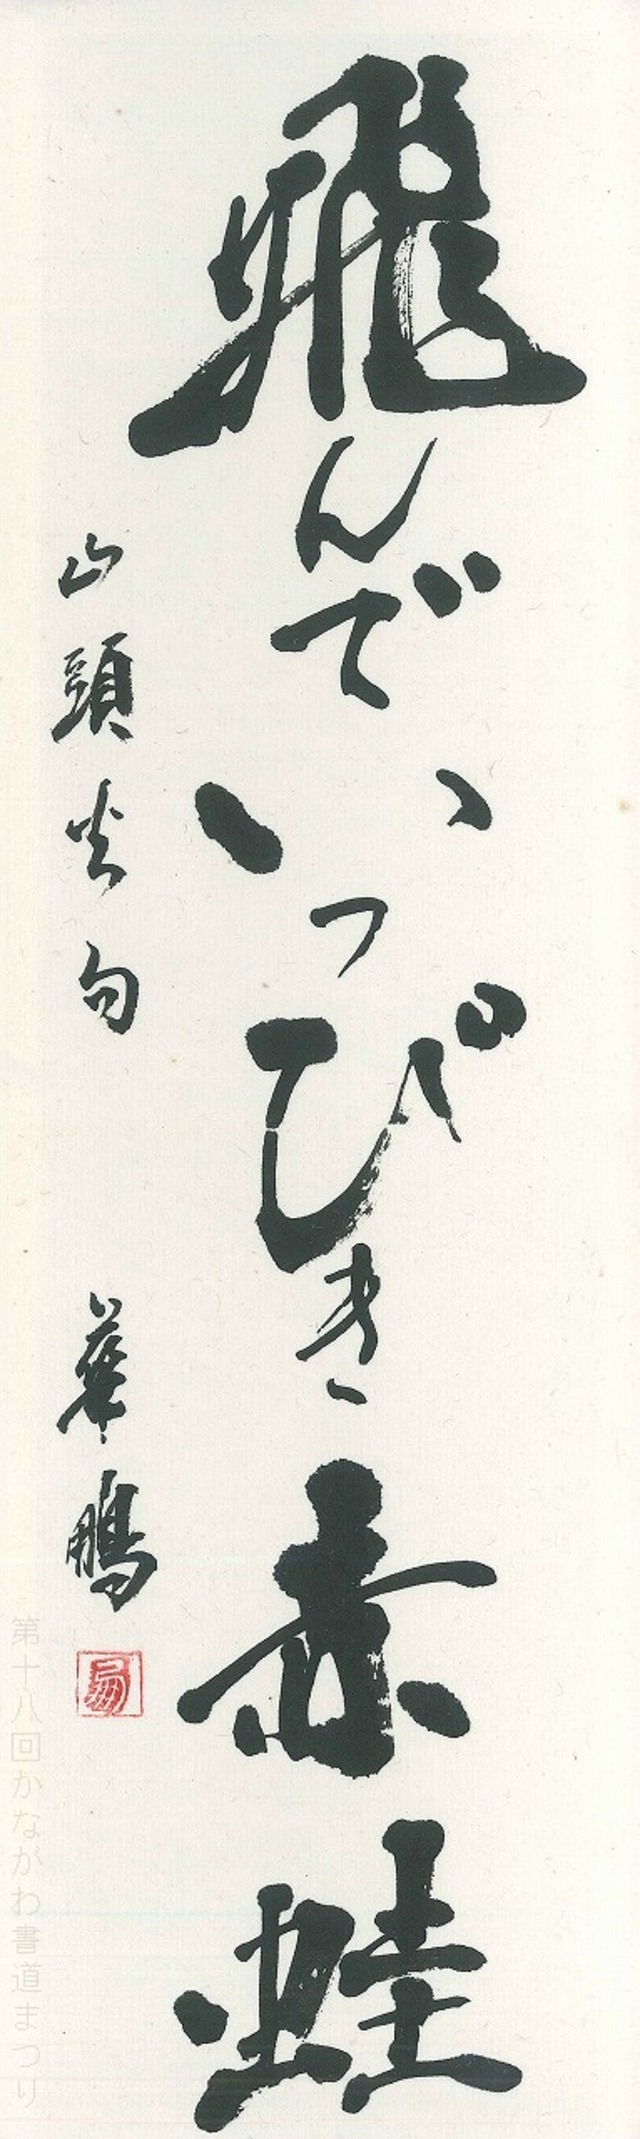 飛んでいっぴき赤蛙
山頭火句
華鵬
第十八回かながわ書道まつり